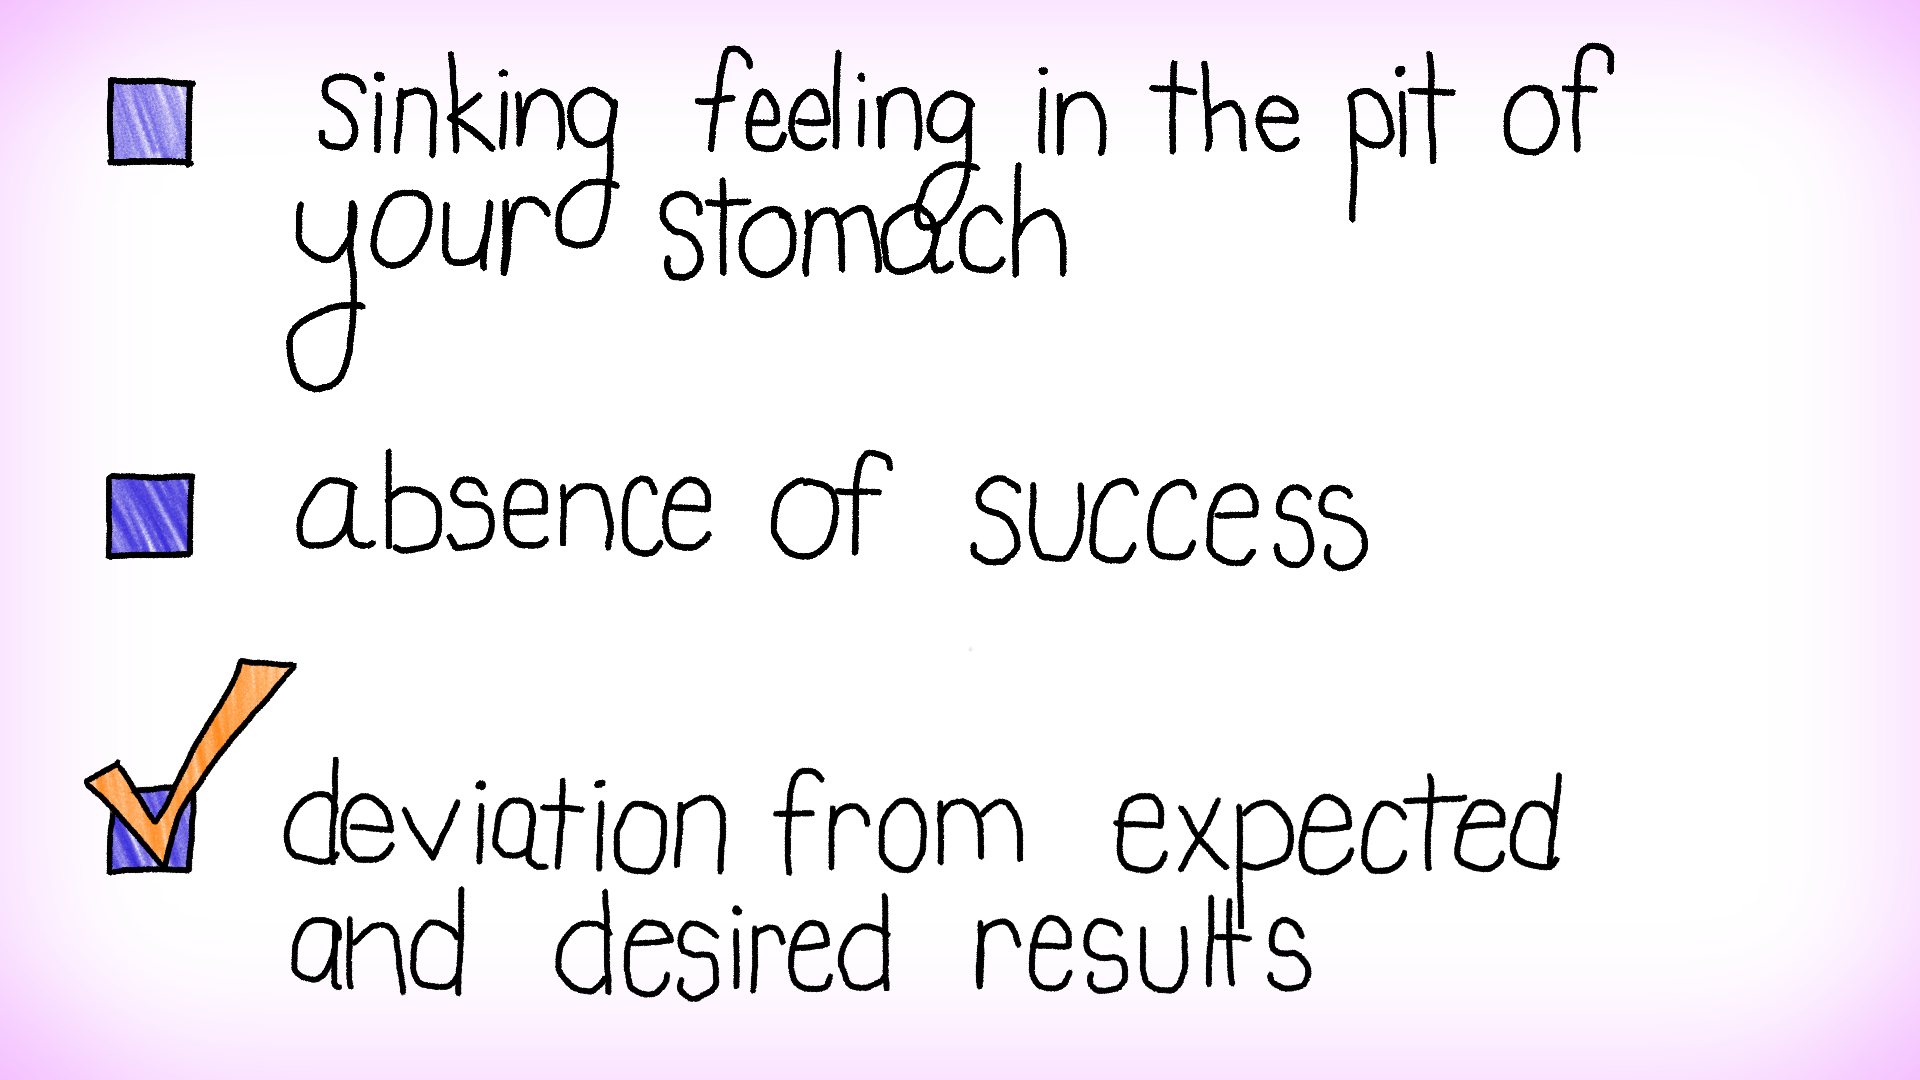 sinking feeling in the pit of
your stomach
absence of success
deviation from expected
and desired results